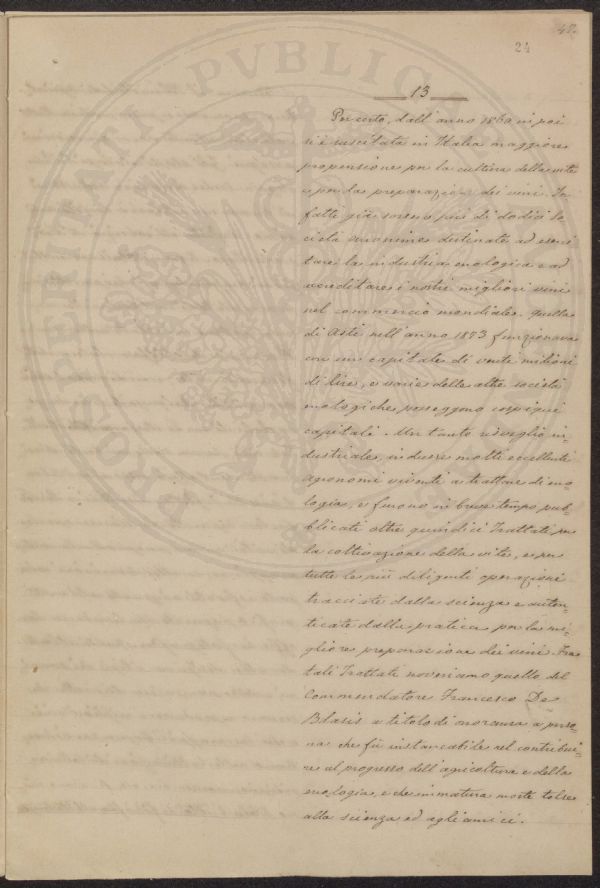 47.
24
13
Per certo, dall'anno 1860 in poi
si è suscitata in Italia maggiore
propensione per la cultura della vite
e per la preparazione dei vini. In
fatti già sorsero più di dodici So
cietà anonime destinate ad eserci
tare la industria enologica e ad
accreditare i nostri migliori vini
nel commercio mondiale. Quella
di Asti nell'anno 1873 funzionava
con un capitale di venti milioni
di lire, e varie delle altre società
enologiche posseggono cospicui
capitali. Un tanto risveglio in
dustriale, indusse molti eccellenti
agronomi viventi a trattare di eno-
logia, e furono in breve tempo pub-
blicati oltre quindici Trattati per
la coltivazione della vite, e per
tutte le più diligenti operazioni
tracciate dalla scienza e auten-
ticate dalla pratica per la mi-
gliore preparazione dei vini. Fra
tali Trattati noveriamo quello del
Commendatore Francesco De
Blasis a titolo di onoranza a perso
na che fù instancabile nel contribui-
re al progresso dell'agricoltura e della
enologia, e che immatura morte tolse
alla scienza ed agli amici.
PROSPERITATI PVBLICAE